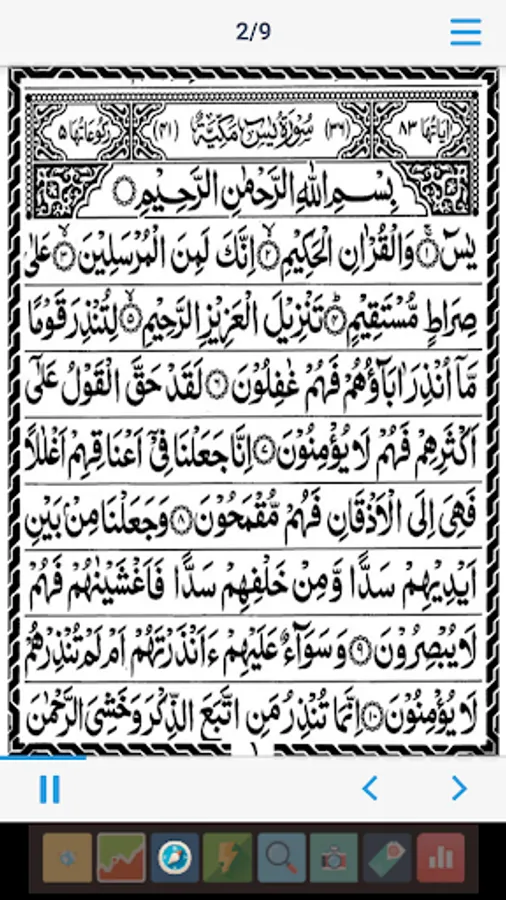 2/9
اٰیَاتُهَا ۸۳ (۳۶) سُوْرَةُ يٰسٓ مَكِّيَّةٌ (۴۱) رُكُوْعَاتُهَا ۵
بِسْمِ اللهِ الرَّحْمٰنِ الرَّحِيْمِ
يٰسٓ ۱ وَالْقُرْاٰنِ الْحَكِيْمِ ۲ اِنَّكَ لَمِنَ الْمُرْسَلِيْنَ ۳ عَلٰى
صِرَاطٍ مُّسْتَقِيْمٍ ۴ تَنْزِيْلَ الْعَزِيْزِ الرَّحِيْمِ ۵ لِتُنْذِرَ قَوْمًا
مَّاۤ اُنْذِرَ اٰبَآؤُهُمْ فَهُمْ غٰفِلُوْنَ ۶ لَقَدْ حَقَّ الْقَوْلُ عَلٰٓى
اَكْثَرِهِمْ فَهُمْ لَا يُؤْمِنُوْنَ ۷ اِنَّا جَعَلْنَا فِيْٓ اَعْنَاقِهِمْ اَغْلٰلًا
فَهِيَ اِلَى الْاَذْقَانِ فَهُمْ مُّقْمَحُوْنَ ۸ وَجَعَلْنَا مِنْۢ بَيْنِ
اَيْدِيْهِمْ سَدًّا وَّمِنْ خَلْفِهِمْ سَدًّا فَاَغْشَيْنٰهُمْ فَهُمْ
لَا يُبْصِرُوْنَ ۹ وَسَوَآءٌ عَلَيْهِمْ ءَاَنْذَرْتَهُمْ اَمْ لَمْ تُنْذِرْهُمْ
لَا يُؤْمِنُوْنَ ۱۰ اِنَّمَا تُنْذِرُ مَنِ اتَّبَعَ الذِّكْرَ وَخَشِيَ الرَّحْمٰنَ
۱